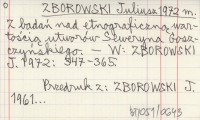 ZBOROWSKI Juliusz 1972 m.
Z badań nad etnograficzną war-
tością utworów Seweryna Gosz-
czyńskiego. – W: ZBOROWSKI
J. 1972: 347-365.
Przedruk z: ZBOROWSKI J.
1961...